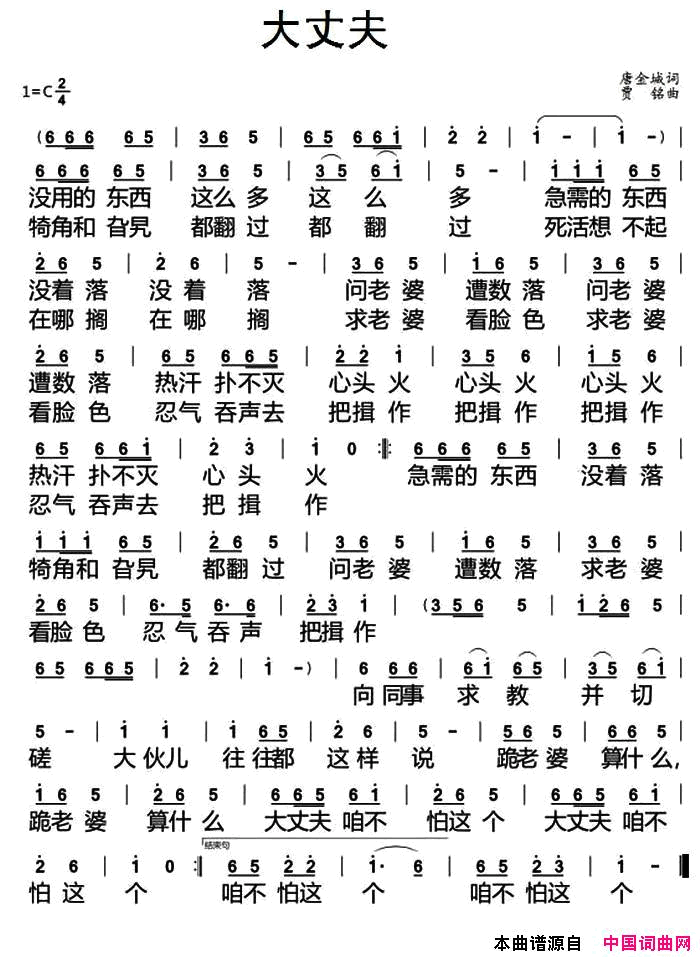 大丈夫
唐金城词
1=C 2/4
贾 铭曲
( 6 6 6 6 5 | 3 6 5 | 6 5 6 6 1 | 2 2 | 1 - | 1 - )
6 6 6 6 5 | 3 6 5 | 3 5 6 1 | 5 - | 1 1 1 6 5
没用的 东西 这么 多 这 么 多 急需的 东西
犄角和 旮旯 都翻 过 都 翻 过 死活想 不起
2 6 5 | 2 6 | 5 - | 3 6 5 | 2 6 5 | 3 6 5 |
没着 落 没 着 落 问老 婆 遭数 落 问老 婆
在哪 搁 在 哪 搁 求老 婆 看脸 色 求老 婆
2 6 5 | 6 5 6 6 5 | 2 2 1 | 3 5 6 | 1 5 6 |
遭数 落 热汗 扑不灭 心头 火 心头 火 心头 火
看脸 色 忍气 吞声去 把揖 作 把揖 作 把揖 作
6 5 6 6 1 | 2 3 | 1 0 :‖: 6 6 6 6 5 | 2 6 5 |
热汗 扑不灭 心 头 火 急需的 东西 没着 落
忍气 吞声去 把 揖 作
1 1 1 6 5 | 2 6 5 | 3 6 5 | 2 6 5 | 3 6 5 |
犄角和 旮旯 都翻 过 问老 婆 遭数 落 求老 婆
2 6 5 | 6· 5 6· 6 | 2 3 1 | ( 3 5 6 6 | 1 2 6 6 |
看脸 色 忍 气 吞 声 把揖 作
6 5 6 6 5 | 2 2 | 1 - ) | 6 6 6 | 6 1 5 | 3 5 1 6 |
向 同事 求 教 并 切
5 - | 1 1 | 6 6 5 | 2 6 5 | 5 6 5 | 3 6 5 |
磋 大 伙儿 往 往都 这样 说 跪老 婆 算什 么,
1 6 5 | 2 6 5 | 6 6 5 6 1 | 2 6 5 | 6 6 5 6 1 |
跪老 婆 算什 么 大丈夫 咱不 怕这 个 大丈夫 咱不
结束句
2 6 | 1 0 :‖ 6 5 2 2 | 1· 6 | 6 5 2 3 | 1 - ‖
怕 这 个 咱不 怕这 个 咱不 怕这 个
本曲谱源自 中国词曲网